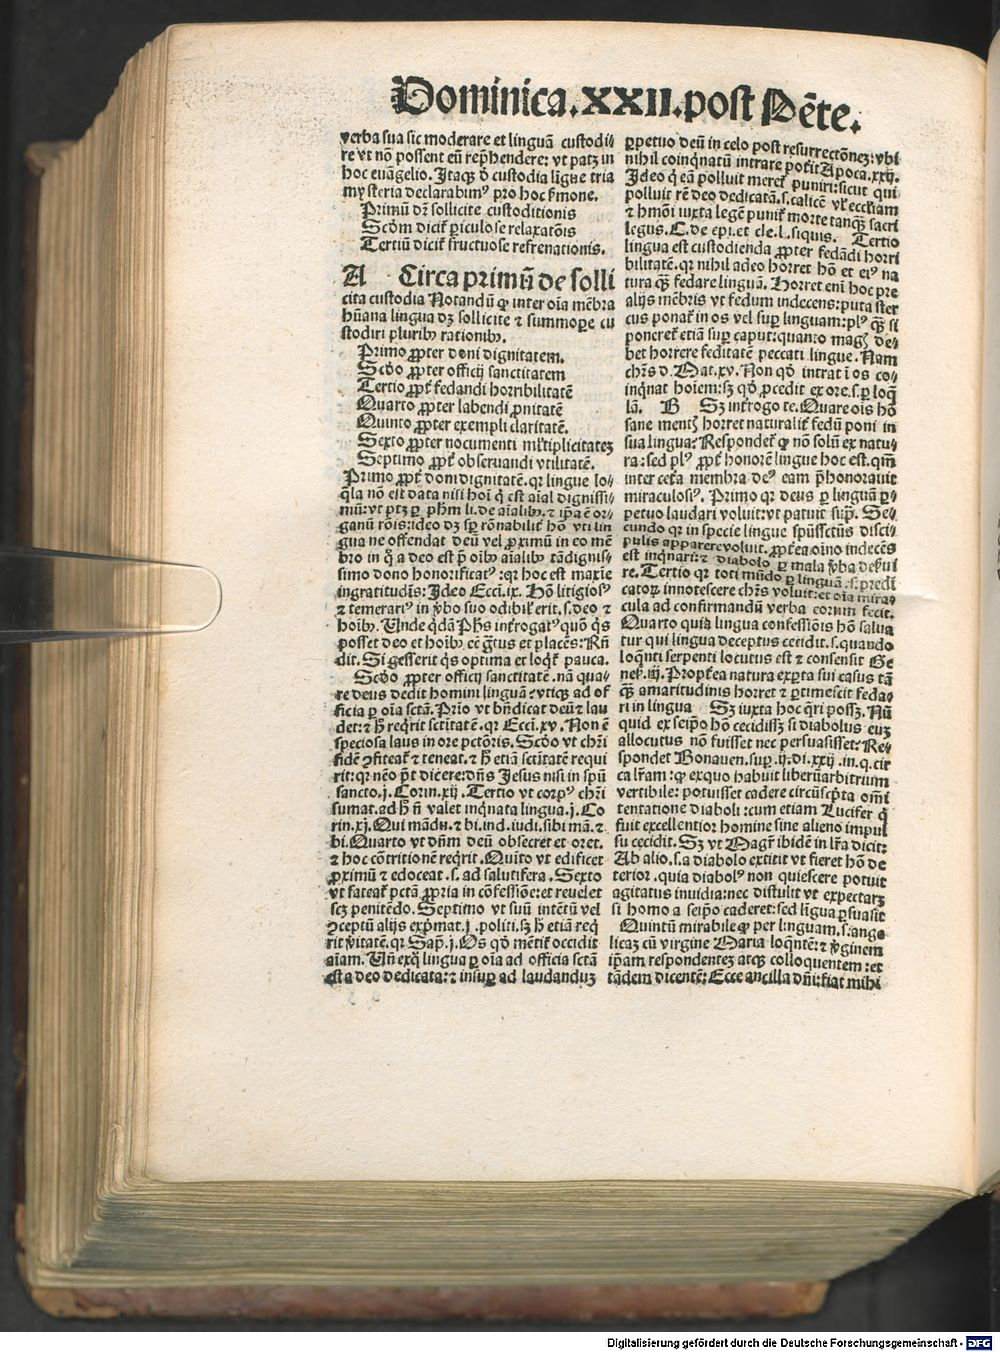 Dominica.XXII.post Pēte.
verba sua sic moderare et linguā custodi-
re vt nō possent eū rep̄hendere: vt patꝫ in
hoc euāgelio. Itaqꝫ d̄ custodia līgue tria
mysteria declarabimꝰ pro hoc ẜmone.
Primū dꝛ̄ sollicite custoditionis
Scḋm dicit᷑ ꝑiculose relaxatōis
Tertiū dicit᷑ fructuose refrenationis.
A Circa primū de solli
cita custodia Notandū ꝙ inter oīa mēbra
hūana lingua dꝫ sollicite ⁊ summoꝑe cu
stodiri pluribꝰ rationibꝰ.
Primo ꝓpter doni dignitatem.
Scḋo ꝓpter officij sanctitatem
Tertio ꝓpt᷑ fedandi horribilitatē
Quarto ꝓpter labendi ꝓnitatē
Quinto ꝓpter exempli claritatē.
Sexto ꝓpter nocumenti ml̓tiplicitateꝫ
Septimo ꝓpt᷑ obseruandi vtilitatē.
Primo ꝓpt᷑ doni dignitatē. qꝛ lingue lo-
q̄la nō est data nisi hoī q̇ est aīal dignissi-
mū: vt ptꝫ ꝑ pħm li. de aīalibꝰ. ⁊ ip̄a ē or-
ganū rōis: ideo dꝫ sꝑ rōnabilit᷑ hō vti lin
gua ne offendat deū vel ꝓximū in eo mē
bro in q̊ a deo est p̄ oībꝰ aīalibꝰ tā dignis-
simo dono honorificatꝰ: qꝛ hoc est maxīe
ingratitudīs: Ideo Ecci. ix. Hō litigiosꝰ
⁊ temerariꝰ in v̓bo suo odibil᷑ erit. s. deo ⁊
hoībꝰ. Unde q̇dā Pħs int̓rogatꝰ quō q̇s
posset deo et hoībꝰ eē g̓tus et placēs: Rn̄
dit. Si gesserit q̇s optima et loq̇t᷑ pauca.
Scḋo ꝓpter officij sanctitatē. nā qua-
re deus dedit homini linguā? vtiqꝫ ad of
ficia ꝑ oīa sctā. Prīo vt bn̄dicat deū ⁊ lau
det: ⁊ ħ req̇rit sctitatē. qꝛ Ecci. xv. Non ē
speciosa laus in ore pctōris. Scḋo vt chr̄i
fidē ꝯfiteat᷑ ⁊ teneat. ⁊ ħ etiā sctitatē requi
rit: qꝛ nēo p̄t dicere: dn̄s Jesus nisi in spū
sancto. j. Corin. xij. Tertio vt corpꝰ chr̄i
sumat. ad ħ n̄ valet inq̇nata lingua. j. Co
rin. xj. Qui mādu. ⁊ bi. ind. iudi. sibi mā. ⁊
bi. Quarto vt dn̄m deū obsecret et oret.
⁊ hoc cōtritionē req̇rit. Quīto vt edificet
ꝓximū ⁊ edoceat. s. ad salutifera. Sexto
vt fateat᷑ pctā ꝓpria in cōfessiōe: et reuelet
scꝫ penitēdo. Septimo vt suū intētū vel
ꝯceptū alijs exp̄mat. j. politi. sꝫ ħ etiā req̇
rit v̓itatē. qꝛ Sap̄. j. Os qḋ mētit᷑ occidit
aīam. Un̄ exq̊ lingua ꝑ oīa ad officia sctā
est a deo dedicata: ⁊ insuꝑ ad laudanduꝫ
ꝑpetuo deū in celo post resurrectōneꝫ: vbi
nihil coinq̇natū intrare pot̓it Apoca. xxij.
Ideo q̇ eā polluit meret᷑ puniri: sicut qui
polluit rē deo dedicatā. s. calicē vl᷑ ecclīam
⁊ hmōi iuxta legē punit᷑ morte tanqꝫ̄ sacri
legus. C. de epi. et cle. l. siquis. Tertio
lingua est custodienda ꝓpter fedādi horri
bilitatē. qꝛ nihil adeo horret hō et eiꝰ na
tura qꝫ̄ fedare linguā. Horret enī hoc pre
alijs mēbris vt fedum indecens: puta ster
cus ponat᷑ in os vel suꝑ linguam: plꝰ qꝫ̄ si
poneret᷑ etiā suꝑ caput: quanto magꝭ de-
bet horrere feditatē peccati lingue. Nam
chr̄s d. Mat. xv. Non qḋ intrat ī os co-
inq̇nat hoīem: sꝫ qḋ ꝓcedit ex ore. s. ꝑ loq̄
lā. B Sꝫ int̓rogo te. Quare oīs hō
sane mentꝭ horret naturalit᷑ fedū poni in
sua lingua? Respondet᷑ ꝙ nō solū ex natu-
ra: sed plꝰ ꝓpt᷑ honorē lingue hoc est. qm̄
inter cet̓a membra deꝰ eam p̄honorauit
miraculosiꝰ. Primo qꝛ deus ꝑ linguā ꝑ-
petuo laudari voluit: vt patuit suꝑ. Se-
cundo qꝛ in specie lingue spūssctūs disci-
pulis apparere voluit. ꝓpt̓ea oīno indecēs
est inq̇nari: ⁊ diabolo ꝑ mala v̓ba
re. Tertio qꝛ toti mūdo ꝑ linguā. s. predi
catoꝝ innotescere chr̄s voluit: et oīa mira-
cula ad confirmandū verba eorum fecit.
Quarto quia lingua confessiōis hō salua
tur qui lingua deceptus cecidit. s. quando
loq̄nti serpenti locutus est ⁊ consensit Ge
nes̄. iij. Propt̓ea natura exꝑta sui casus tā
qꝫ̄ amaritudinis horret ⁊ ꝑtimescit feda-
ri in lingua Sꝫ iuxta hoc q̄ri possꝫ. Nū
quid ex seip̄o hō cecidissꝫ si diabolus euꝫ
allocutus nō fuisset nec persuasisset? Re-
spondet Bonauen. suꝑ. ij. di. xxij. in. q. cir
ca lr̄am: ꝙ exquo habuit liberū arbitrium
vertibile: potuisset cadere circūscp̄ta omī
tentatione diaboli: cum etiam Lucifer q̇
fuit excellentior homine sine alieno impul
su cecidit. Sꝫ vt Magr̄ ibidē in lr̄a dicit:
Ab alio. s. a diabolo extitit vt fieret hō de
terior. quia diabolꝰ non quiescere potuit
agitatus inuidia: nec distulit vt expectarꝫ
si homo a seip̄o caderet: sed līgua ꝑsuasit
Quintū mirabile ꝙ per linguam. s. ange
licaꝫ cū virgine Maria loq̄ntē: ⁊ v̓ginem
ip̄am respondenteꝫ atqꝫ colloquentem: et
tādem dicentē: Ecce ancilla dn̄i: fiat mihi
Digitalisierung gefördert durch die Deutsche Forschungsgemeinschaft - DFG